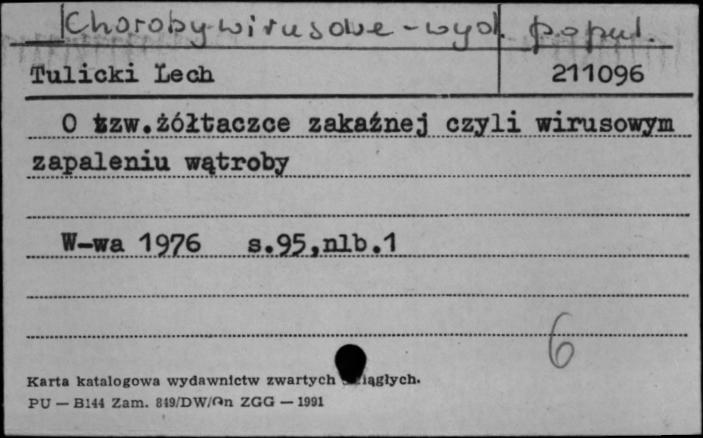 Choroby wirusowe - wyd. popul.
Tulicki Lech 211096
O tzw.żółtaczce zakaźnej czyli wirusowym
zapaleniu wątroby
W-wa 1976 s.95,nlb.1
6
Karta katalogowa wydawnictw zwartych i ciągłych.
PU — B144 Zam. 849/DW/On ZGG — 1991